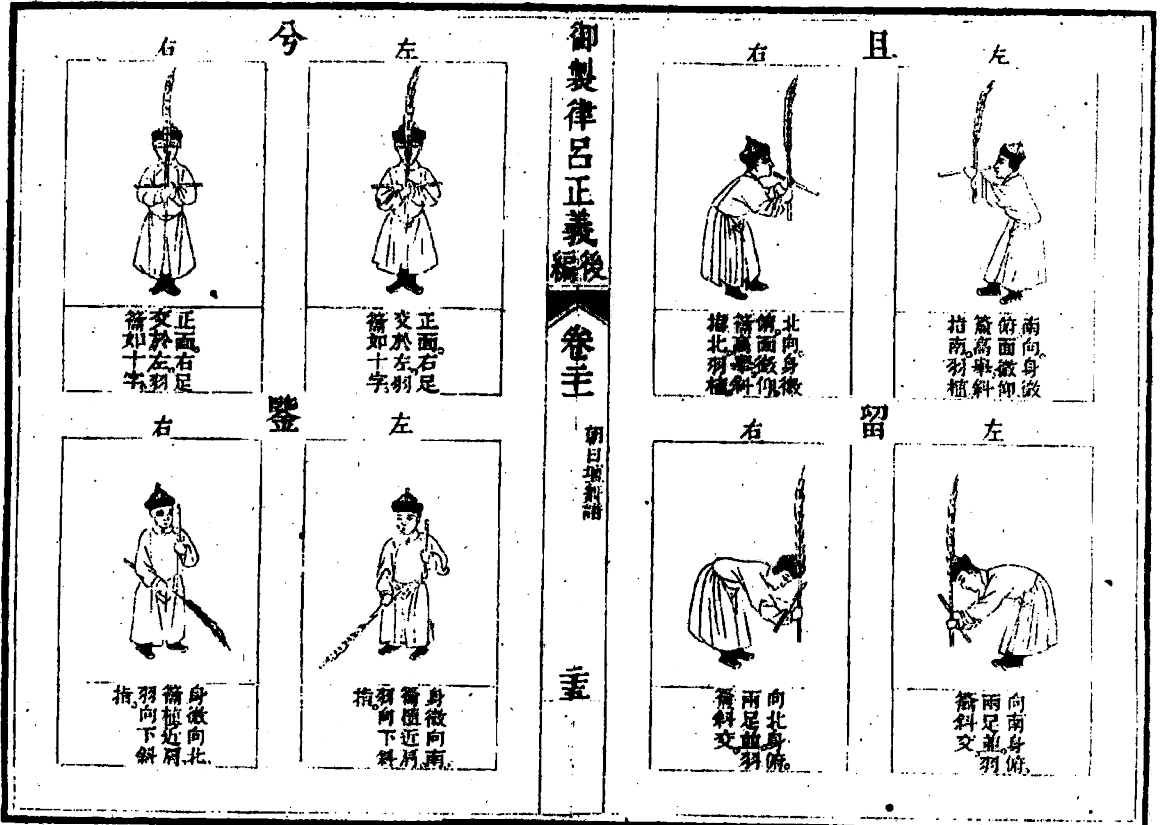 且
左
南向身微
俯面微仰
籥高舉斜
指南羽植
右
北向身微
俯面微仰
籥高舉斜
指北羽植
留
左
向南身俯
兩足並羽
籥斜交
右
向北身俯
兩足並羽
籥斜交
御製律呂正義後編
卷三十二
朝日壇舞譜
兮
左
正面右足
交於左羽
籥如十字
右
正面右足
交於左羽
籥如十字
鑒
左
身微向南
籥植近肩
羽向下斜
指
右
身微向北
籥植近肩
羽向下斜
指